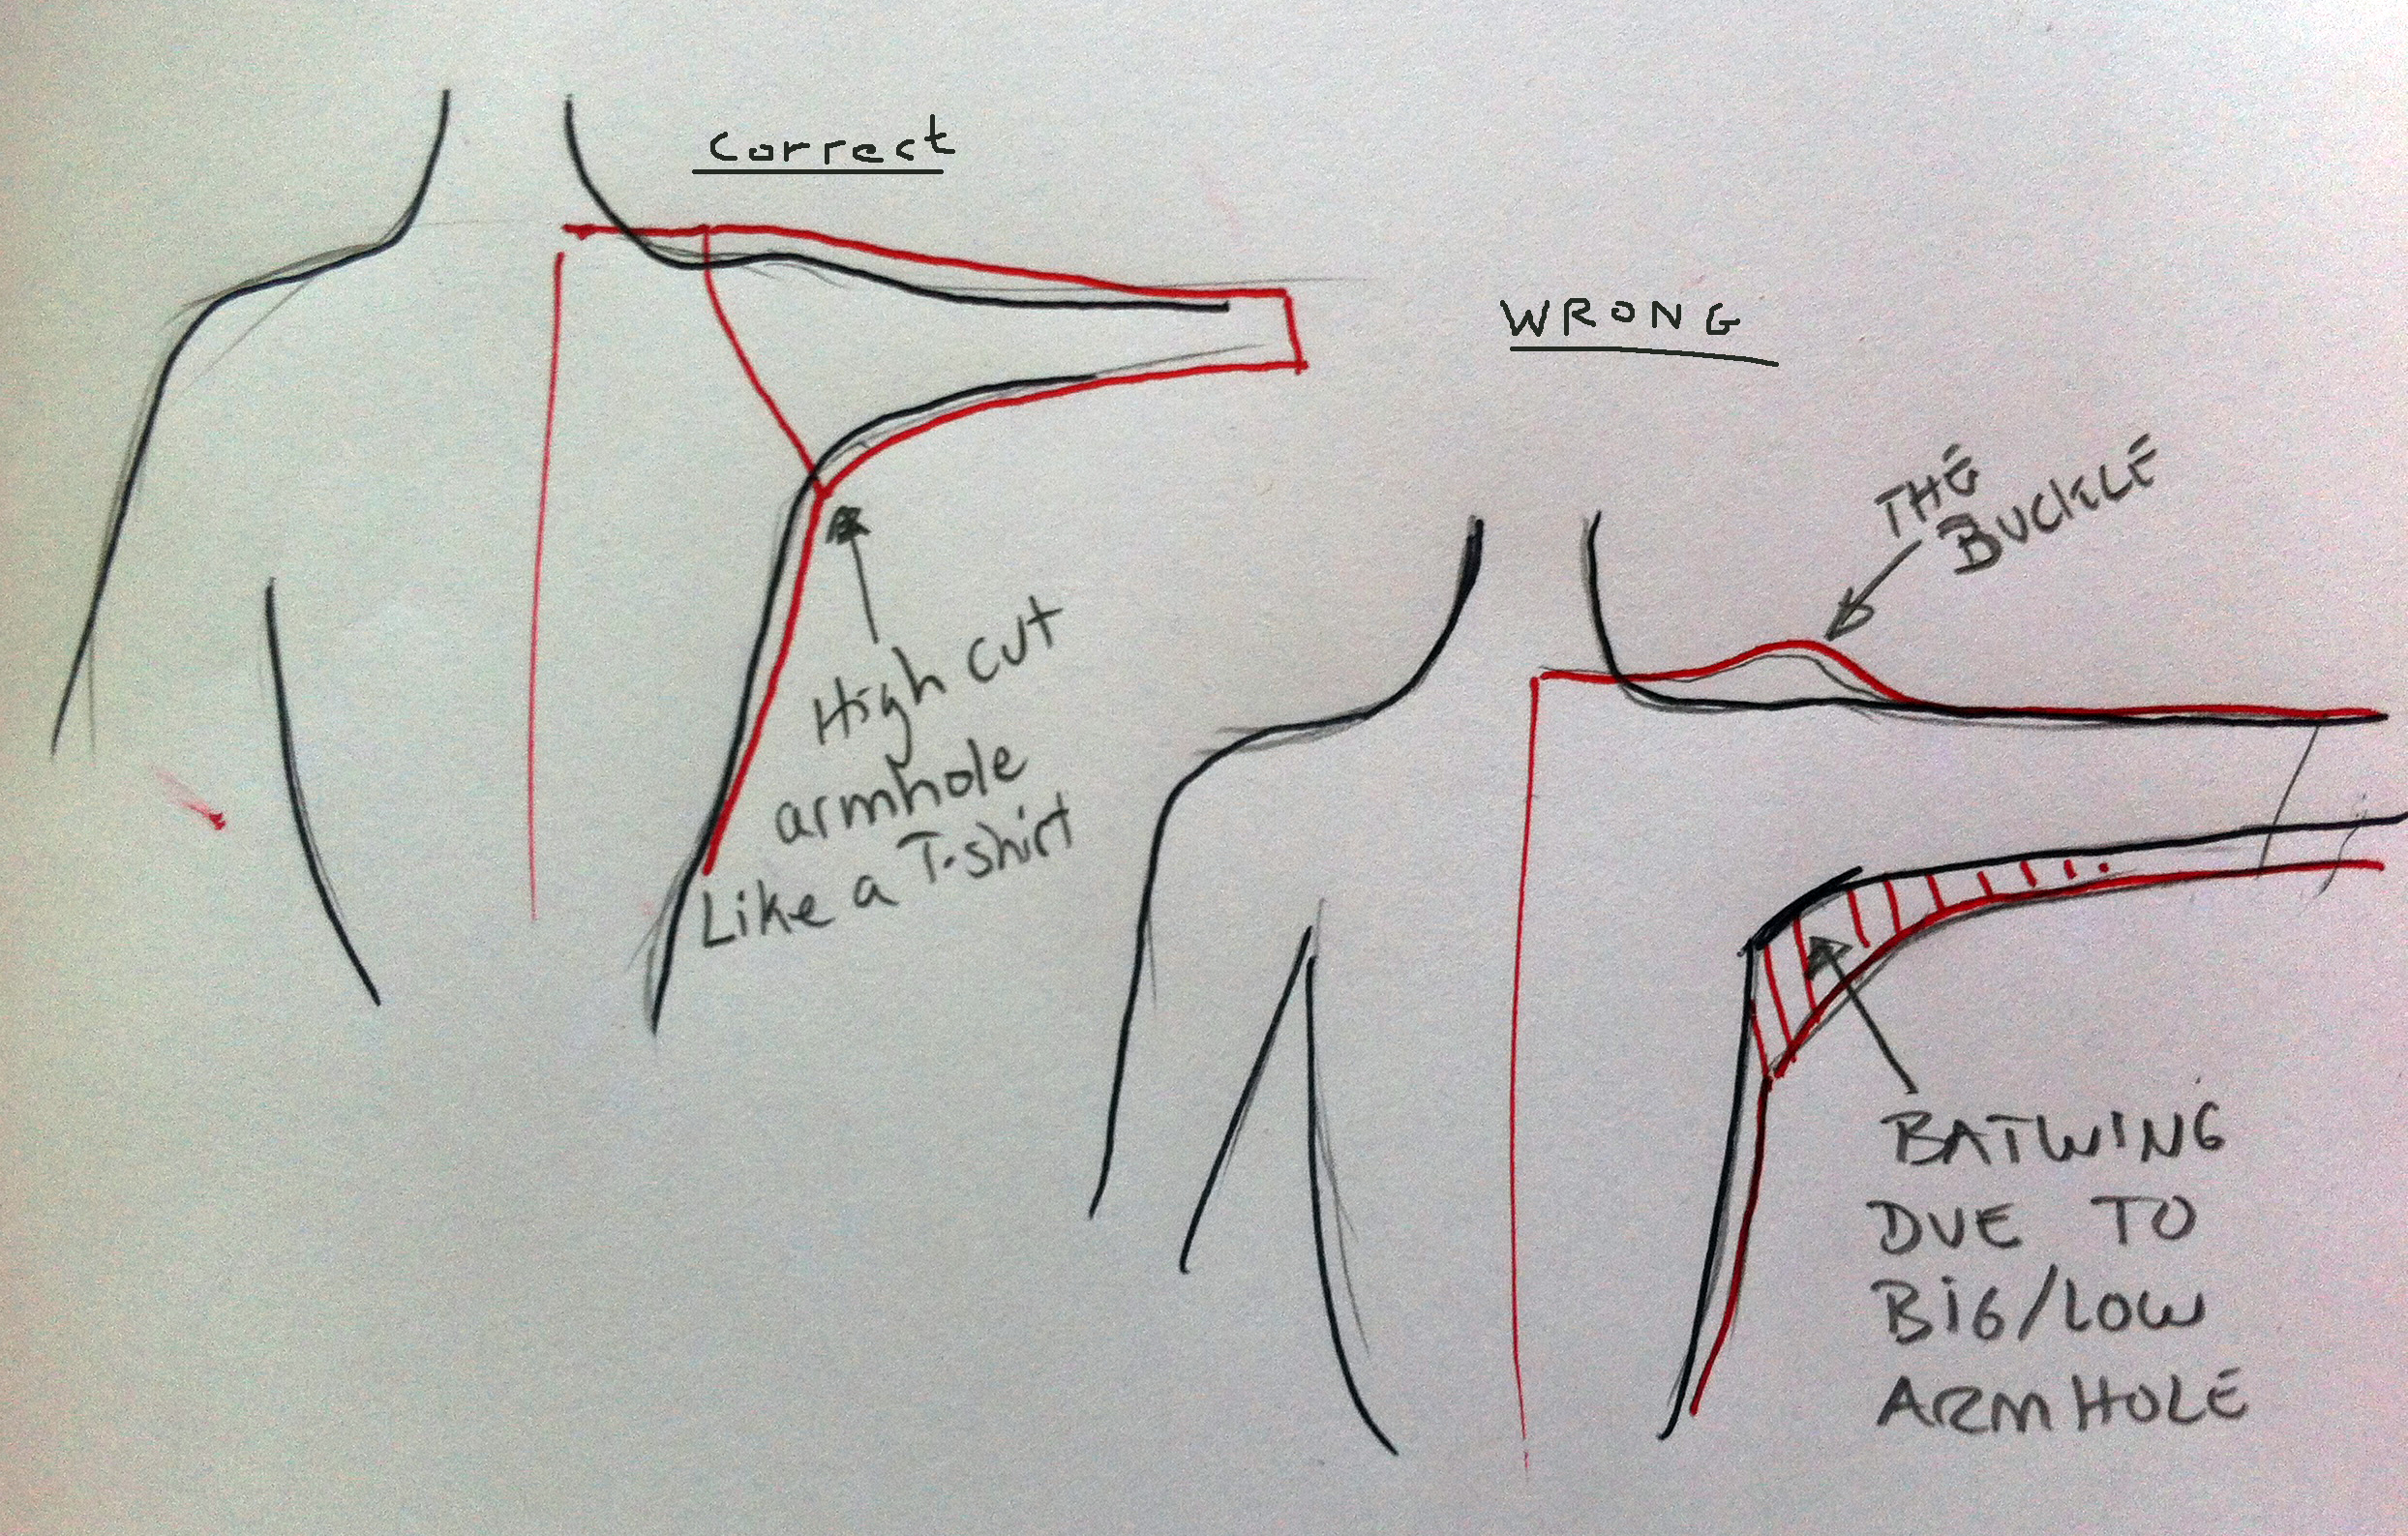 Correct
High cut
armhole
Like a T-shirt
WRONG
THE
BUCKLE
BATWING
DUE TO
BIG/LOW
ARMHOLE